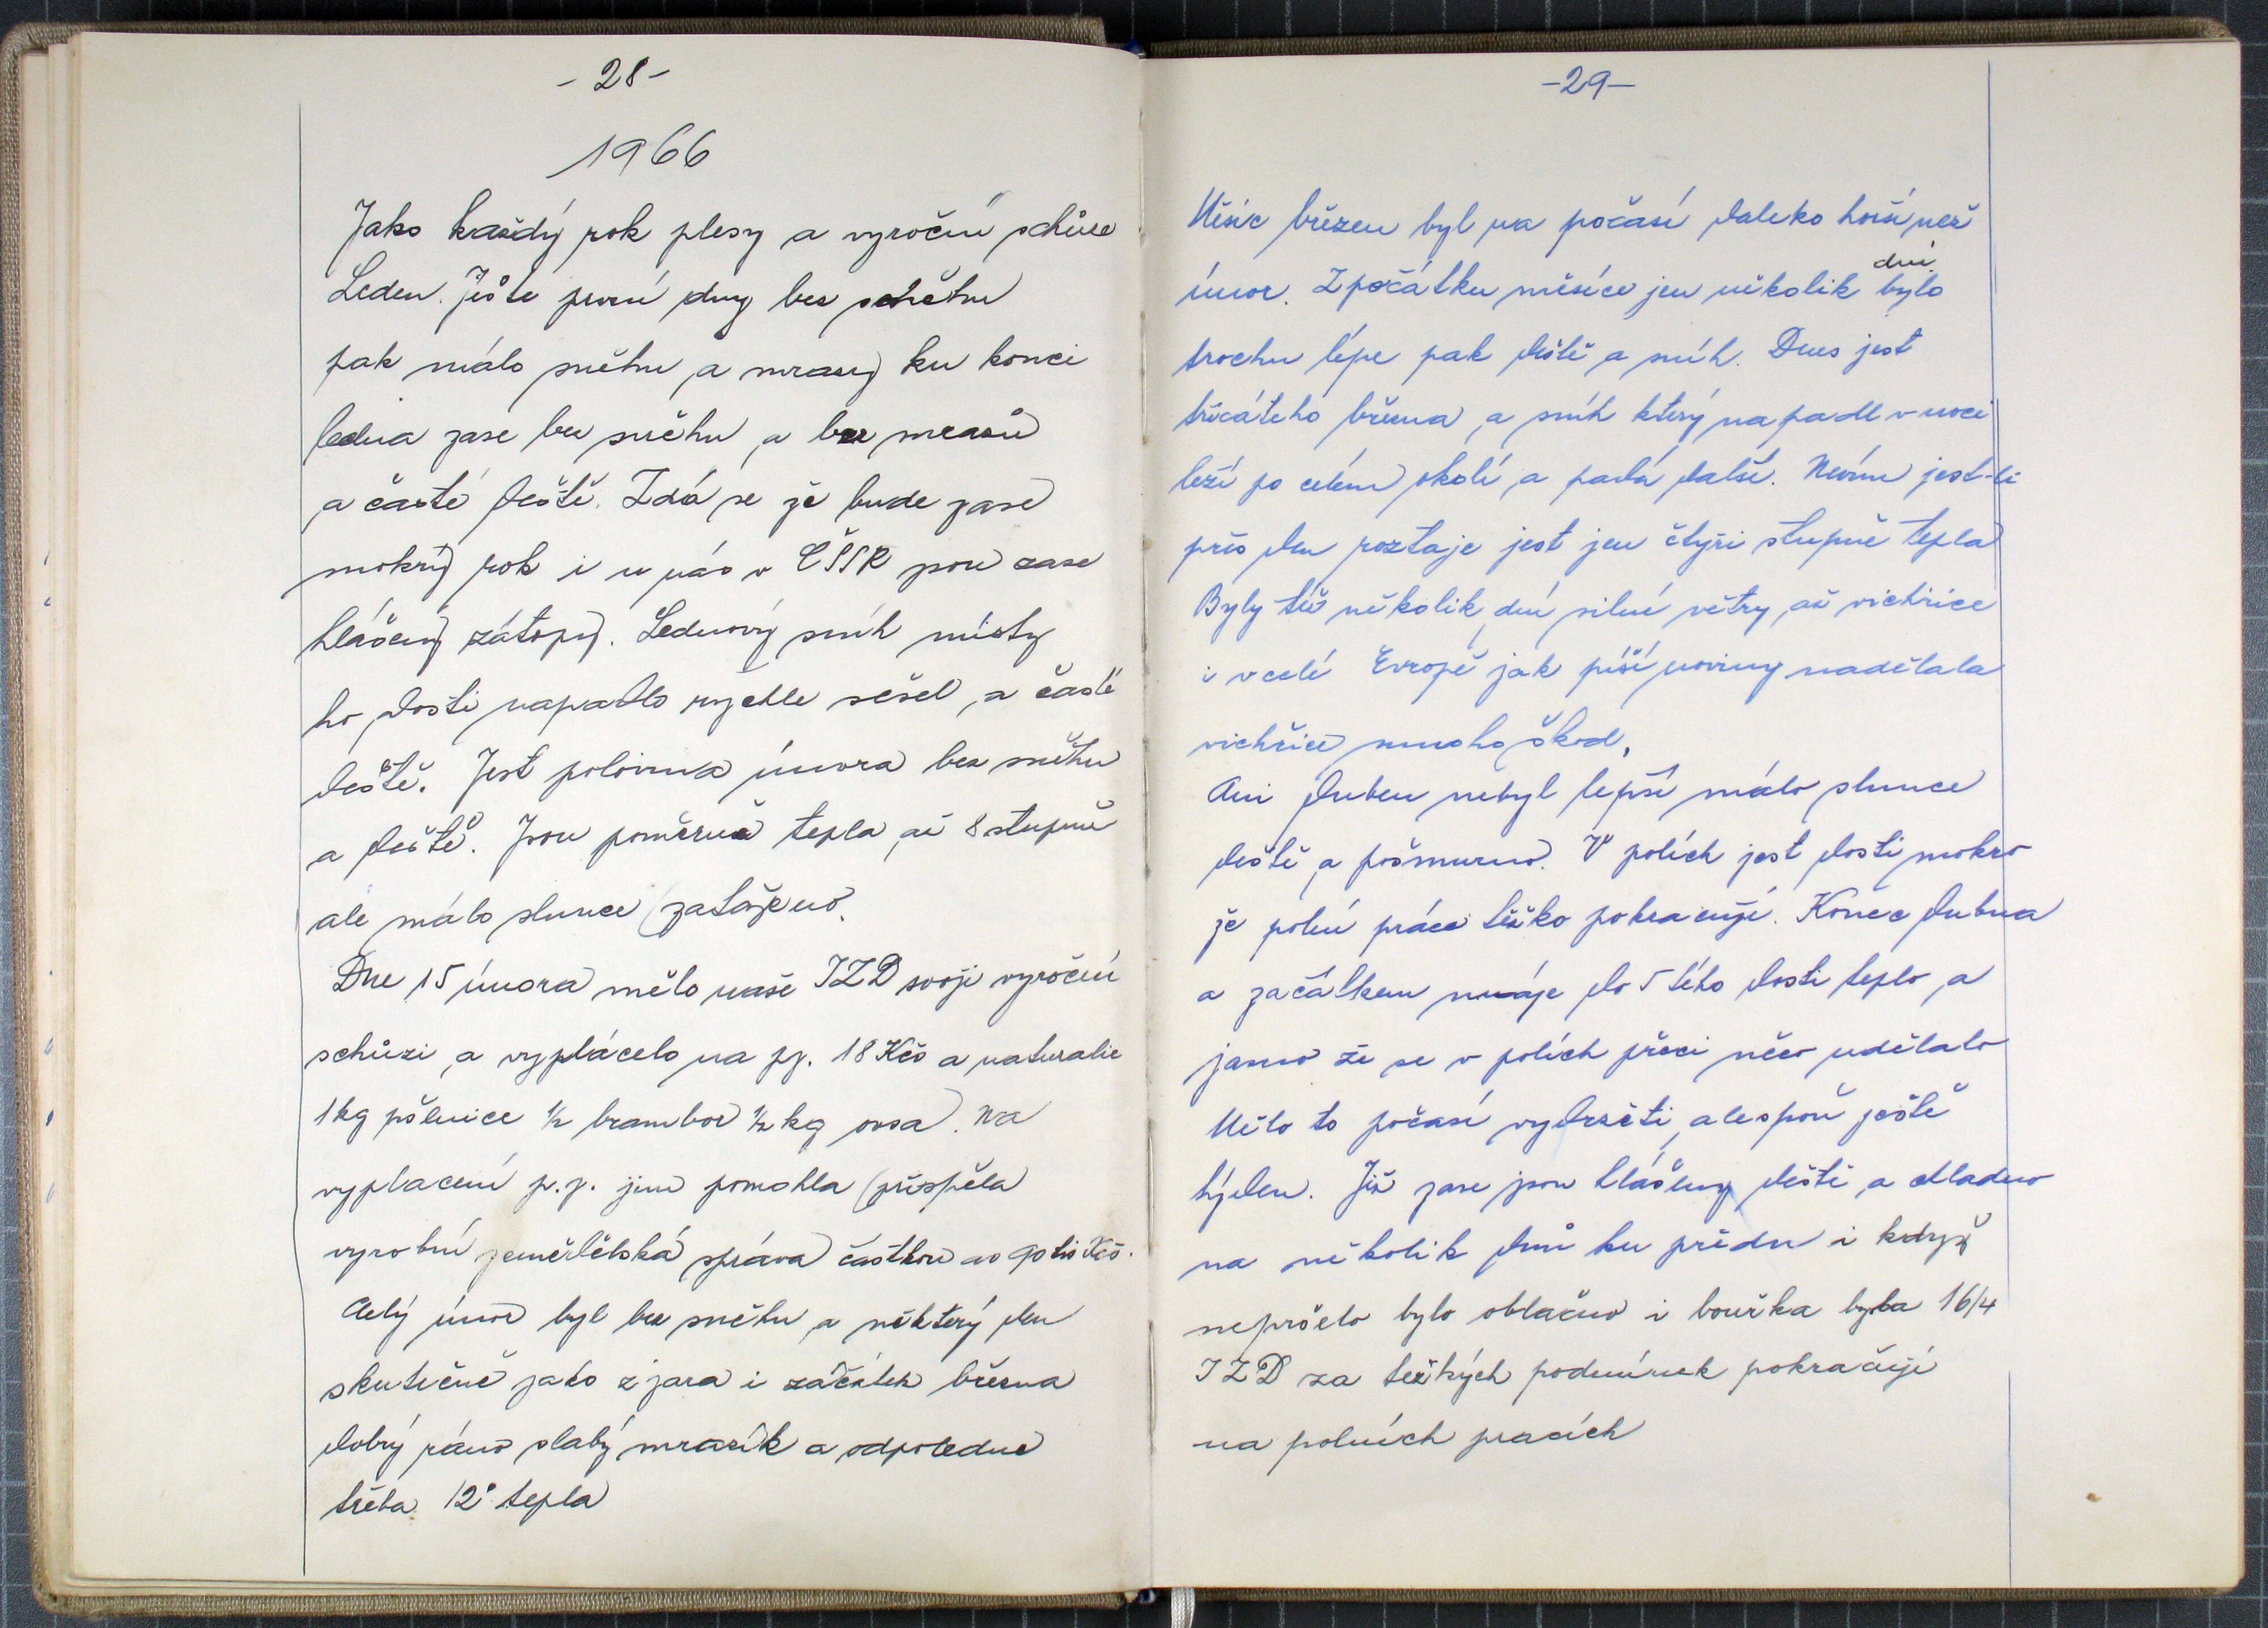 - 28 -
1966
Jako každý rok plesy a vyroční schůze
Leden. Ještě první dny bez sněhu
pak málo sněhu, a mrazy ku konci
ledna zase bez sněhu, a bez mrazů
a časté deště. Zdá se že bude zase
mokrý rok i u nás v ČSSR jsou zase
hlášeny zátopy. Lednový sníh místy
ho dosti napadlo rychle sešel, a časté
deště. Jest polovina února bez sněhu
a deště. Jsou poměrně tepla, až 8 stupňů
ale málo slunce (zataženo.
Dne 15 února mělo naše JZD svoji vyroční
schůzi, a vyplácelo na pj. 18 Kčs a naturalie
1 kg pšenice ½ brambor ½ kg ovsa. Na
vyplacení p.j. jim pomohla (přispěla
vyrobní zemědělská správa částkou 90 tis Kčs.
Celý únor byl bez sněhu a některý den
skutečně jako z jara i začátek března
dobrý ráno slabý mrazík a odpoledne
třeba 12° tepla
- 29 -
Měsíc březen byl na počasí daleko horší než
únor. Z počátku měsíce jen několik dní bylo
trochu lépe pak deště a sníh. Dnes jest
třicátého března, a sníh který napadl v noci
leží po celém okolí, a padá další. Nevím jest-li
přes den roztaje jest jen čtyři stupně tepla
Byly též několik dní silné větry, až vichřice
i v celé Evropě jak píší noviny nadělala
vichřice mnoho škod.
Ani duben nebyl lepší málo slunce
deště, a pošmurno. V polích jest dosti mokro
že polní práce těžko pokracují. Konec dubna
a začátkem máje do 5 tého dosti teplo, a
jasno že se v polích přeci něco udělalo
Mělo to počasí vydrzeti, alespoň ještě
týden. Již zase jsou hlášeny deště, a chladno
na několik dnů ku předu i když
nepršelo bylo oblačno i bouřka byla 16/4
JZD za težkých podmínek pokračují
na polních pracích